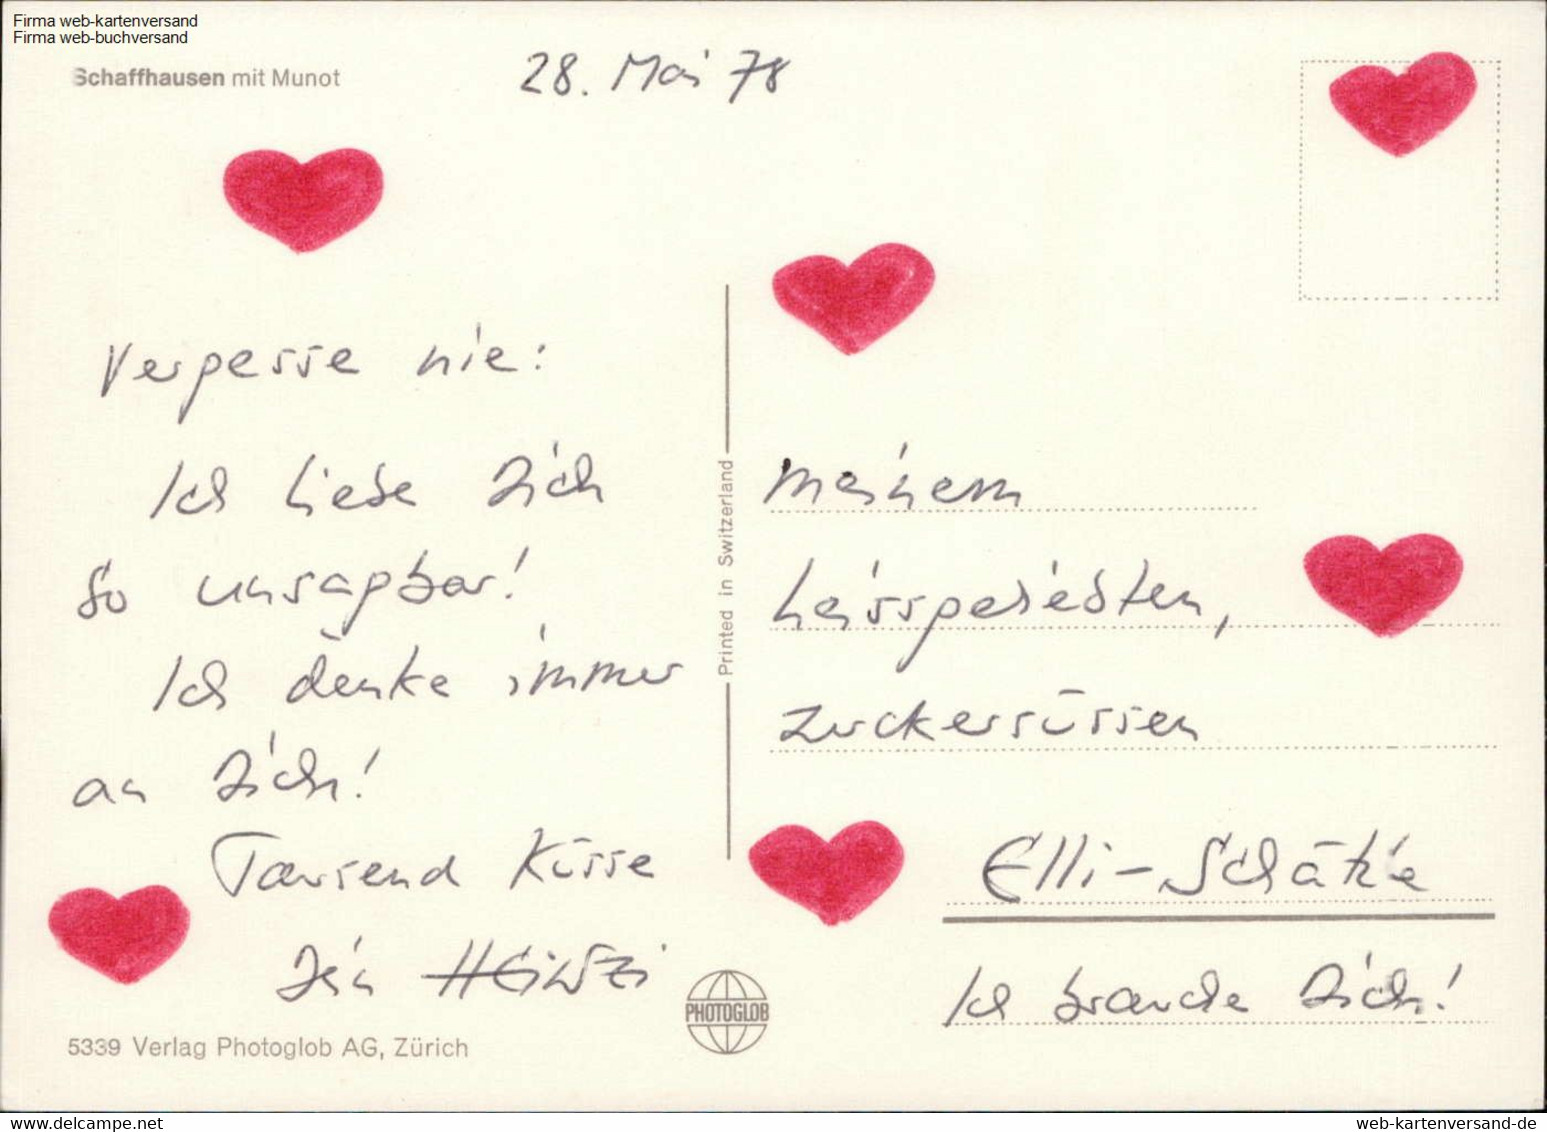 Firma web-kartenversand
Firma web-buchversand
Schaffhausen mit Munot
28. Mai 78
Vergesse nie:
Ich liebe Dich
so unsagbar!
Ich denke immer
an Dich!
Tausend Küsse
Dein HEiNZi
5339 Verlag Photoglob AG, Zürich
Printed in Switzerland
PHOTOGLOB
Meinem
heissgeliebten,
zuckersüssen
Elli-Schätzle
Ich brauche Dich!
www.delcampe.net
web-kartenversand-de